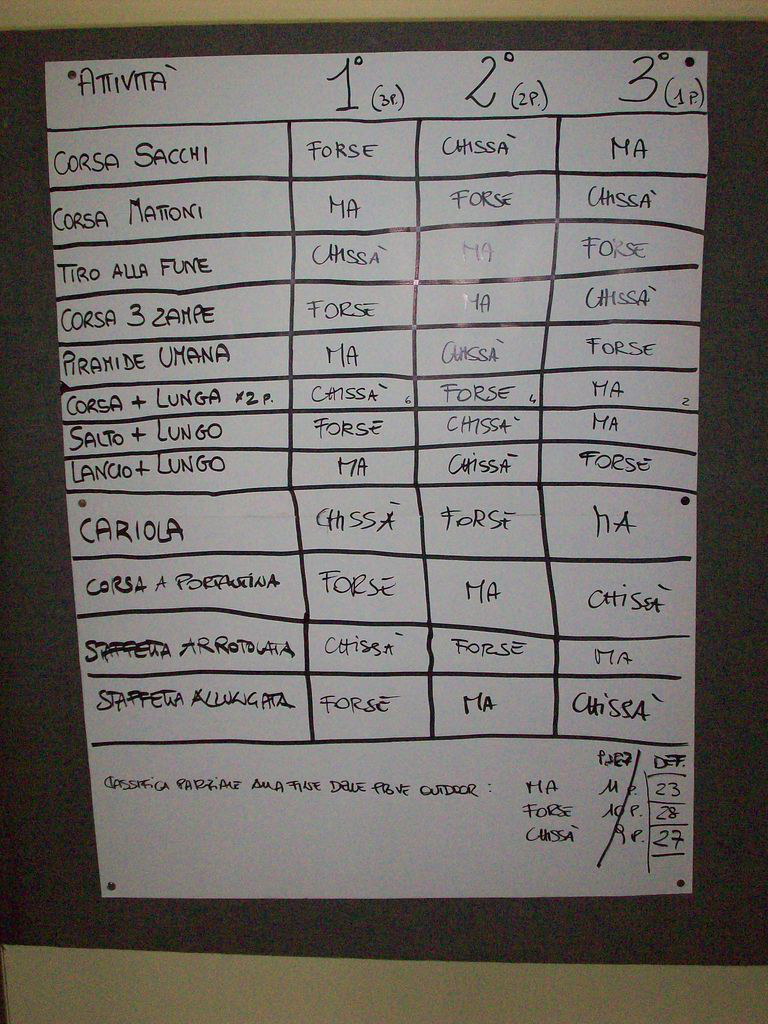 ATTIVITÀ 1° (3P.) 2° (2P.) 3° (1P.)
CORSA SACCHI FORSE CHISSÀ MA
CORSA MATTONI MA FORSE CHISSÀ
TIRO ALLA FUNE CHISSÀ MA FORSE
CORSA 3 ZAMPE FORSE MA CHISSÀ
PIRAMIDE UMANA MA CHISSÀ FORSE
CORSA + LUNGA x2 P. CHISSÀ 6 FORSE 4 MA 2
SALTO + LUNGO FORSE CHISSÀ MA
LANCIO + LUNGO MA CHISSÀ FORSE
CARIOLA CHISSÀ FORSE MA
CORSA A PORTANTINA FORSE MA CHISSÀ
STAFFETTA ARROTOLATA CHISSÀ FORSE MA
STAFFETTA ALLUNGATA FORSE MA CHISSÀ
PARZ DEF.
CLASSIFICA PARZIALE ALLA FINE DELLE PROVE OUTDOOR: MA 11 P. 23
FORSE 10 P. 28
CHISSÀ 9 P. 27